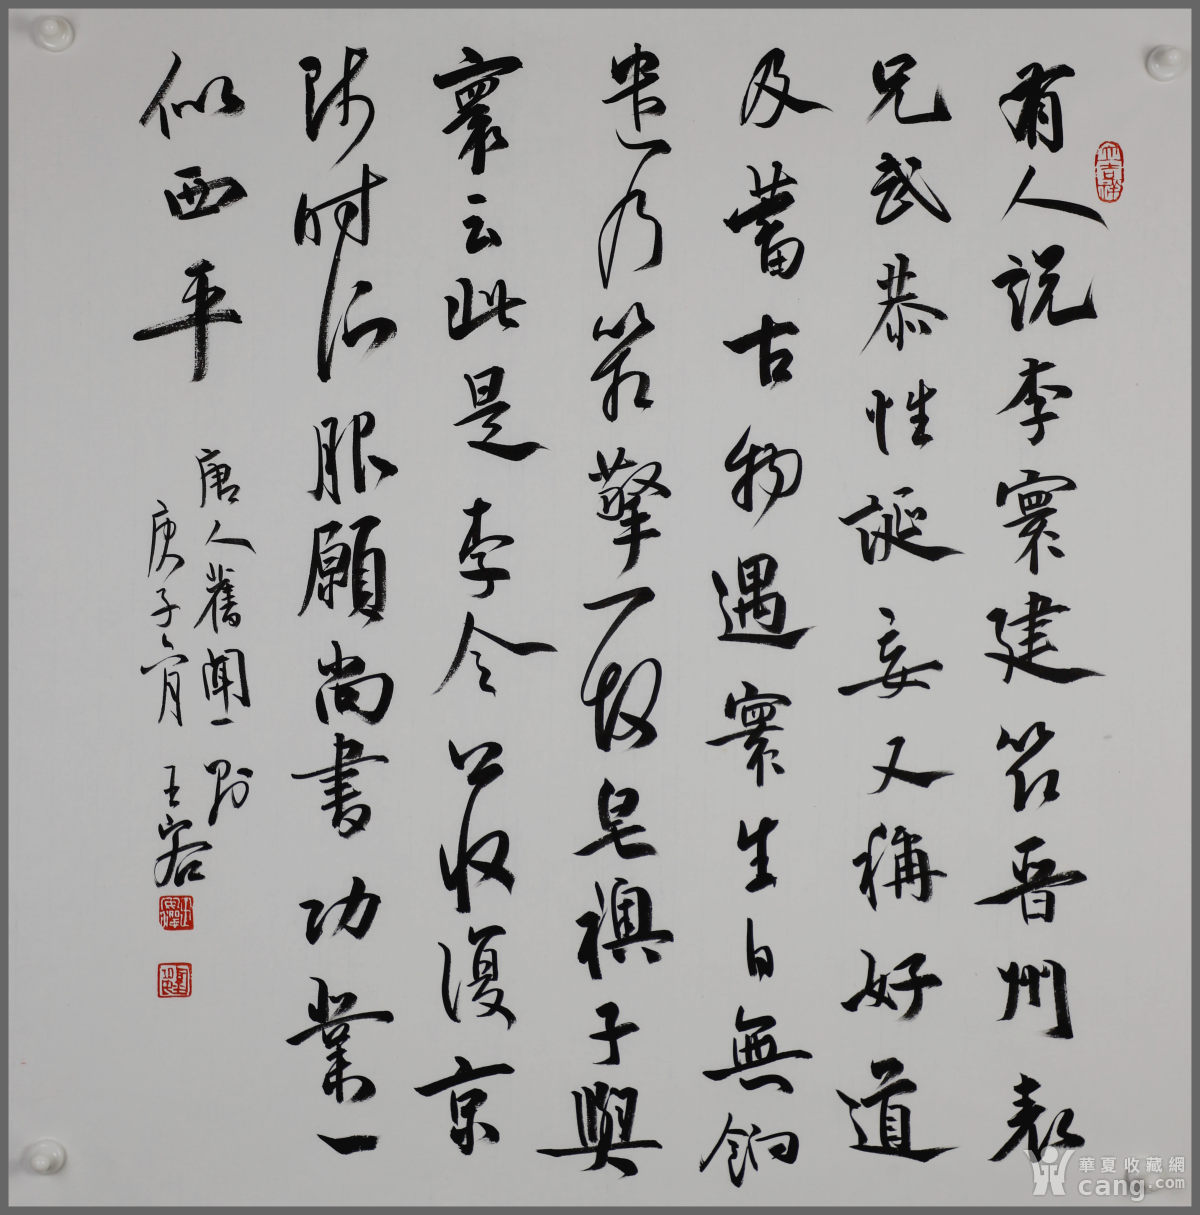 有人說李寰建節晉州表
兄武恭性誕妄又稱好道
及蓄古物遇寰生日無餉
遺乃箱擎一故皂襖子與
寰云此是李令公收復京
師時所服願尚書功業一
似西平
唐人舊聞一則
庚子 王容
華夏收藏網
cang.com